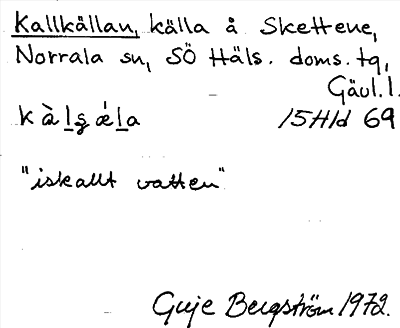 Kallkällan, källa å Skettene,
Norrala sn, SÖ Häls. doms. tg,
Gävl. l.
kàlʂǽla 15H1d 69
"iskallt vatten"
Guje Bergström 1972.